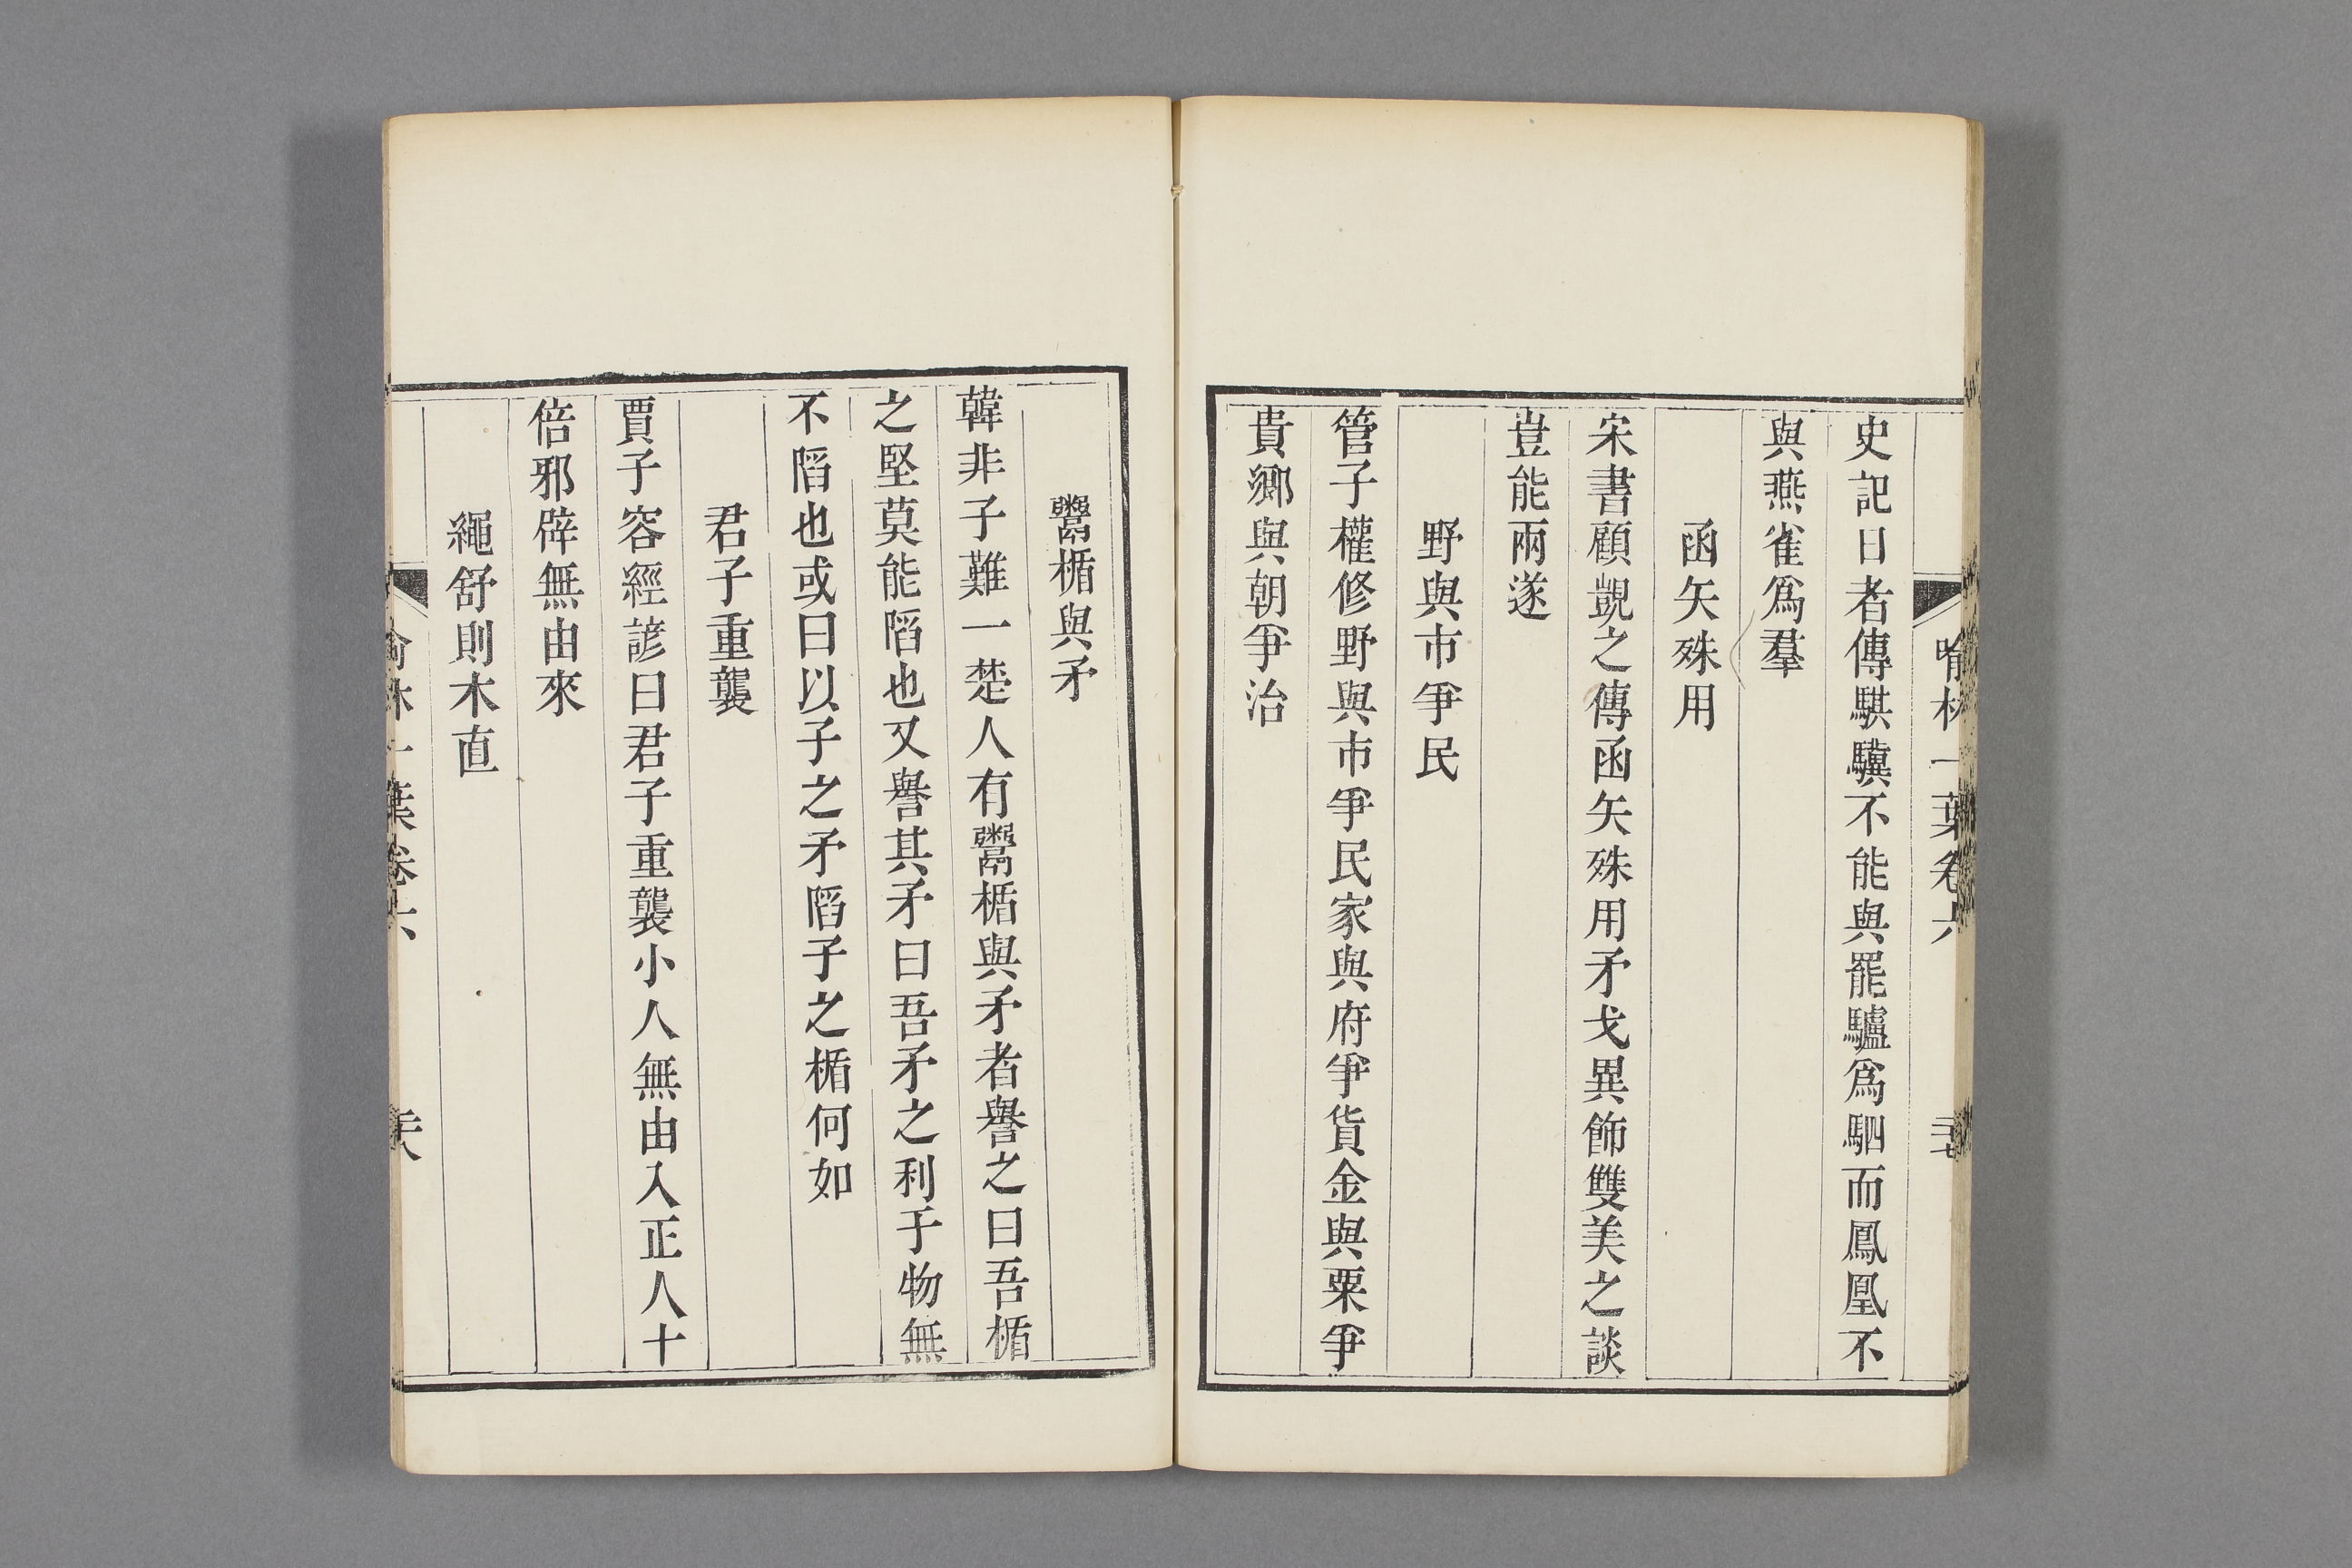 喻林一葉卷六
史記日者傳騏驥不能與罷驢爲駟而鳳凰不
與燕雀爲羣
函矢殊用
宋書顧覬之傳函矢殊用矛戈異飾雙美之談
豈能兩遂
野與市爭民
管子權修野與市爭民家與府爭貨金與粟爭
貴鄉與朝爭治
鬻楯與矛
韓非子難一楚人有鬻楯與矛者譽之曰吾楯
之堅莫能陷也又譽其矛曰吾矛之利于物無
不陷也或曰以子之矛陷子之楯何如
君子重襲
賈子容經諺曰君子重襲小人無由入正人十
倍邪辟無由來
繩舒則木直
喻林一葉卷六